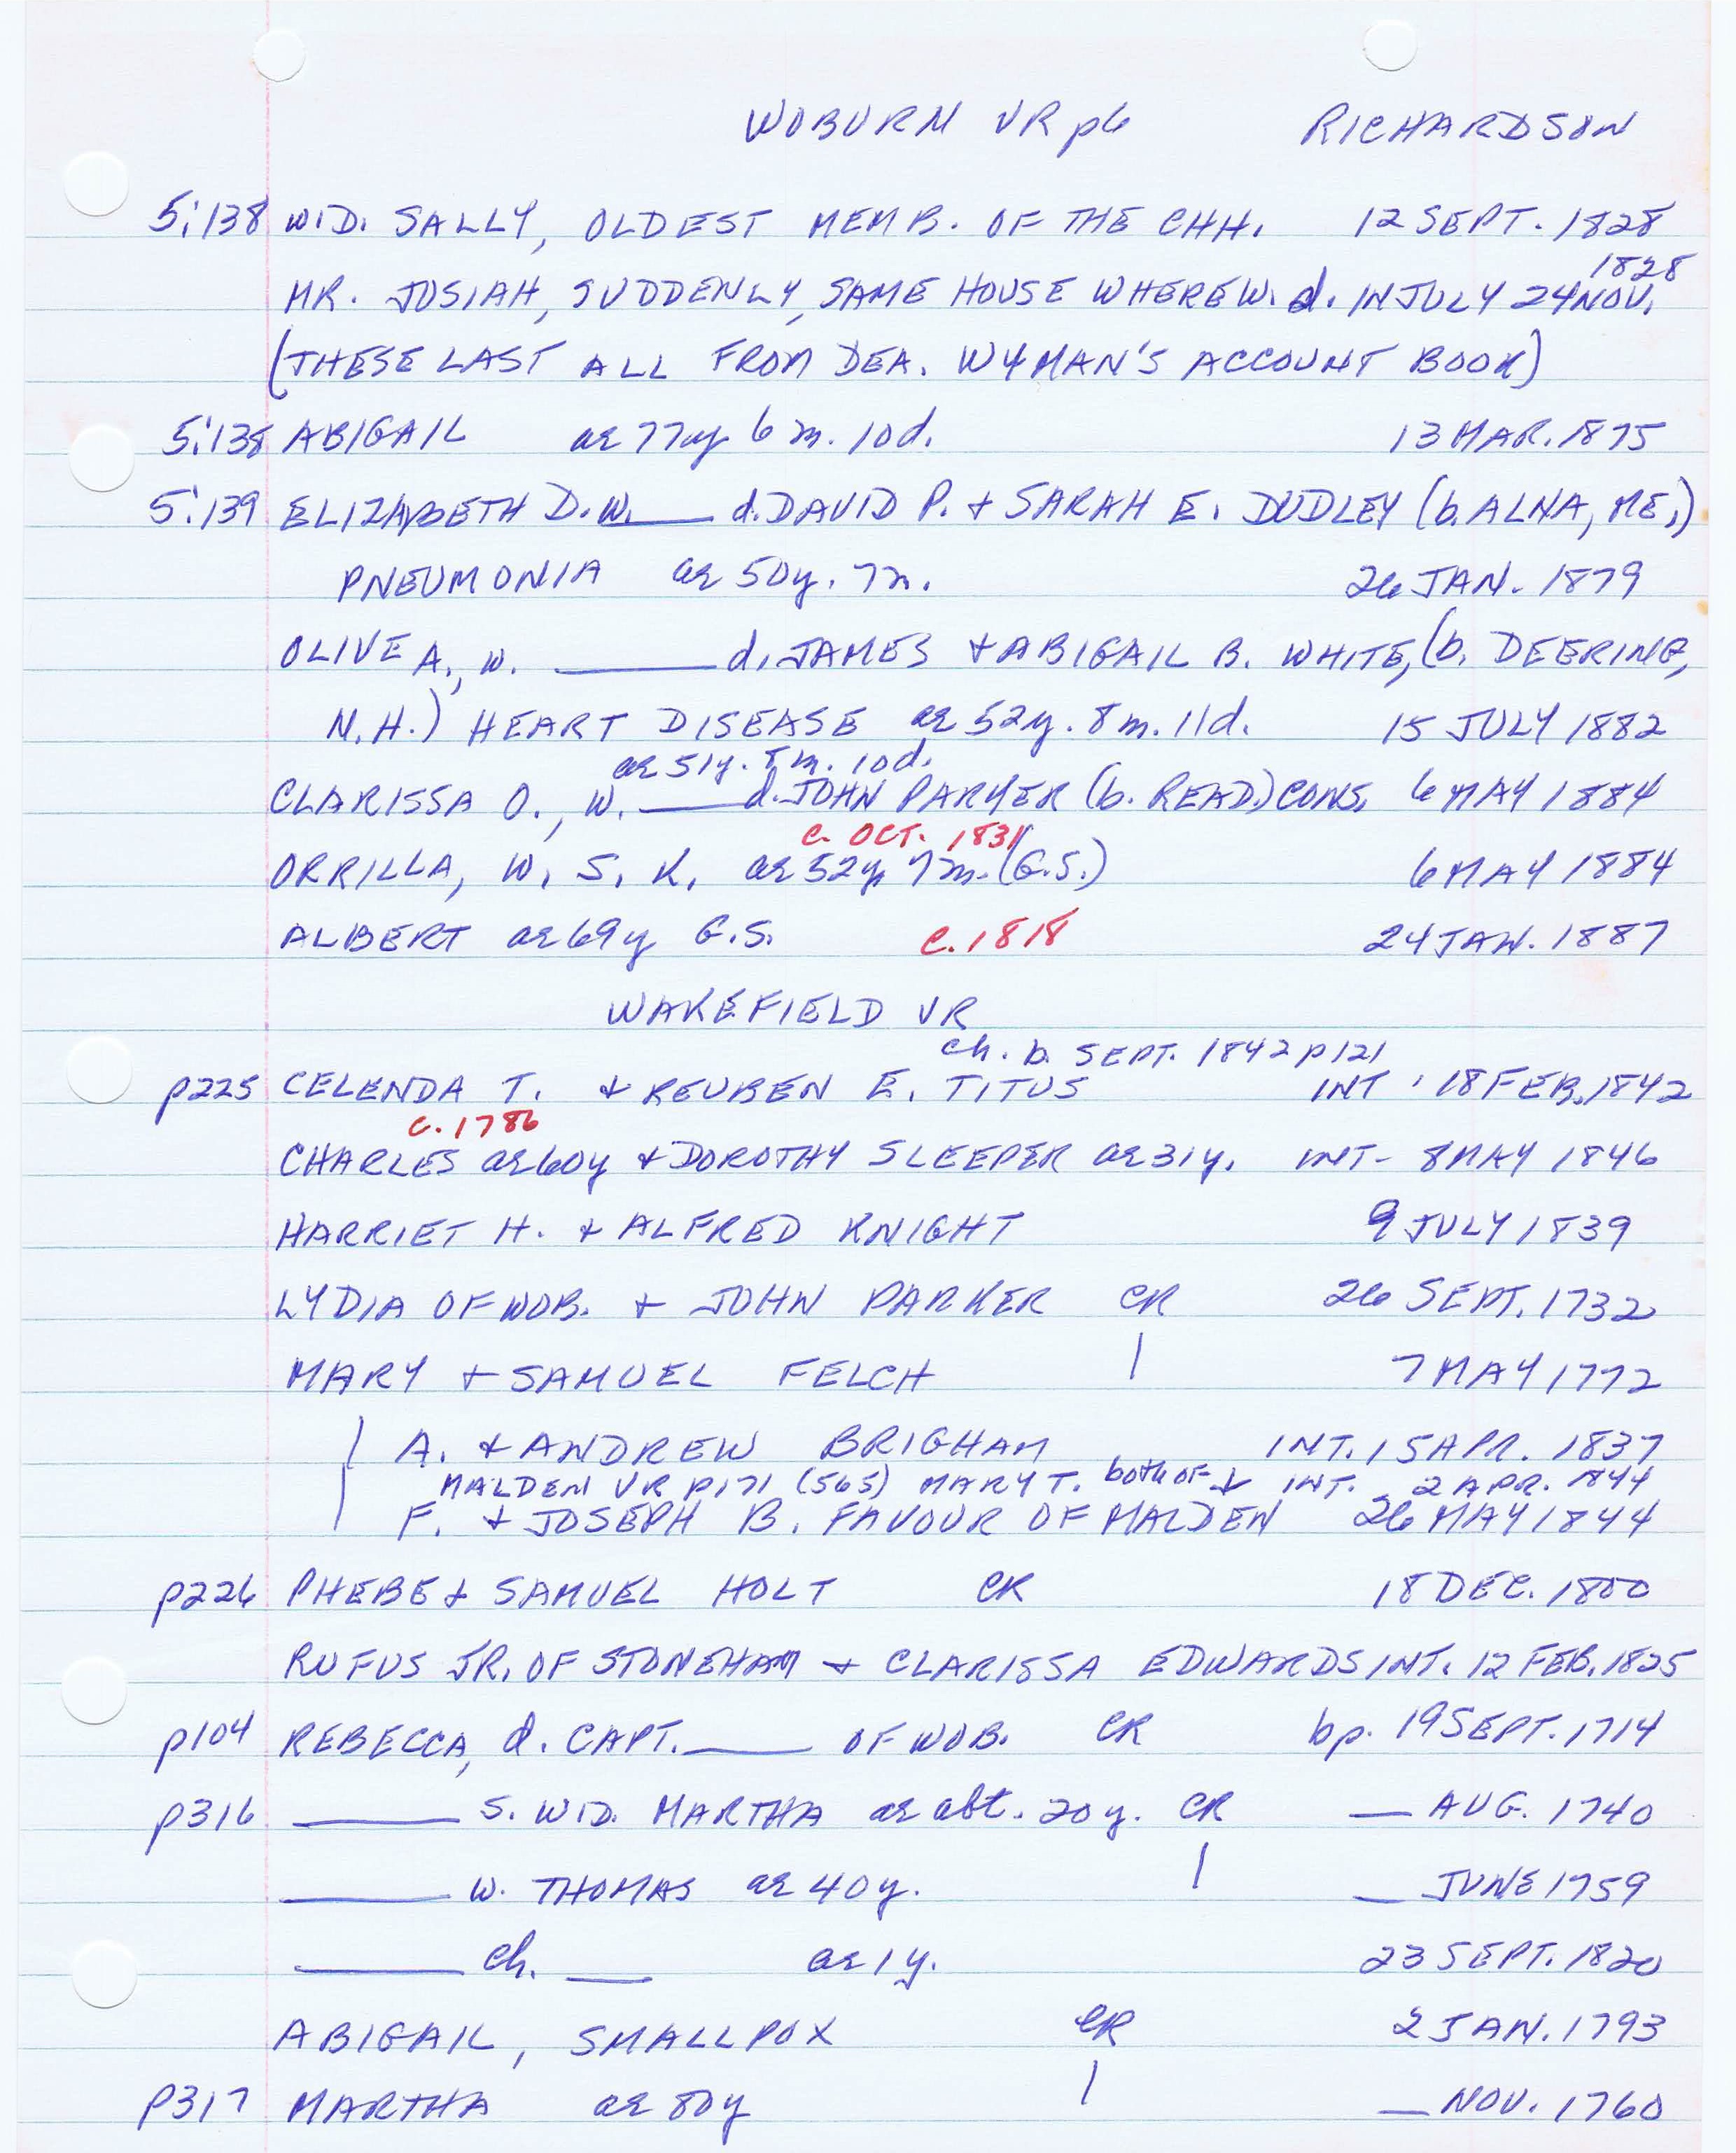 WOBURN VR p6 RICHARDSON
5:138 WID. SALLY, OLDEST MEMB. OF THE CHH. 12 SEPT. 1828
1828
MR. JOSIAH, SUDDENLY, SAME HOUSE WHERE W. d. IN JULY 24 NOV.
(THESE LAST ALL FROM DEA. WYMAN'S ACCOUNT BOOK)
5:138 ABIGAIL ae 77y 6 m. 10d. 13 MAR. 1875
5:139 ELIZABETH D. W. ____ d. DAVID P. + SARAH E. DUDLEY (b. ALNA, ME.)
PNEUMONIA ae 50y. 7m. 26 JAN. 1879
OLIVE A., W. ____ d. JAMES + ABIGAIL B. WHITE, (b. DEERING,
N.H.) HEART DISEASE ae 52y. 8m. 11d. 15 JULY 1882
ae 51y. 8m. 10d.
CLARISSA O., W. ____ d. JOHN PARKER (b. READ.) CONS. 6 MAY 1884
c. OCT. 1831
ORRILLA, W. S. K. ae 52y 7m. (G.S.) 6 MAY 1884
ALBERT ae 69y G.S. c. 1818 24 JAN. 1887
WAKEFIELD VR
ch. b. SEPT. 1842 p121
p225 CELENDA T. + REUBEN E. TITUS INT. 18 FEB. 1842
c. 1786
CHARLES ae 60y + DOROTHY SLEEPER ae 31y. INT- 8 MAY 1846
HARRIET H. + ALFRED KNIGHT 9 JULY 1839
LYDIA OF WOB. + JOHN PARKER CR 26 SEPT. 1732
MARY + SAMUEL FELCH | 7 MAY 1772
| A. + ANDREW BRIGHAM INT. 15 APR. 1837
MALDEN VR p171 (565) MARY T. both of ↓ INT. 2 APR. 1844
| F. + JOSEPH B. FAVOUR OF MALDEN 26 MAY 1844
p226 PHEBE + SAMUEL HOLT CR 18 DEC. 1800
RUFUS JR. OF STONEHAM + CLARISSA EDWARDS INT. 12 FEB. 1825
p104 REBECCA, d. CAPT. ____ OF WOB. CR bp. 19 SEPT. 1714
p316 ____ S. WID. MARTHA ae abt. 20y. CR __ AUG. 1740
____ W. THOMAS ae 40y. | __ JUNE 1759
____ ch. __ ae 1y. 23 SEPT. 1820
ABIGAIL, SMALLPOX CR 2 JAN. 1793
p317 MARTHA ae 80y | __ NOV. 1760